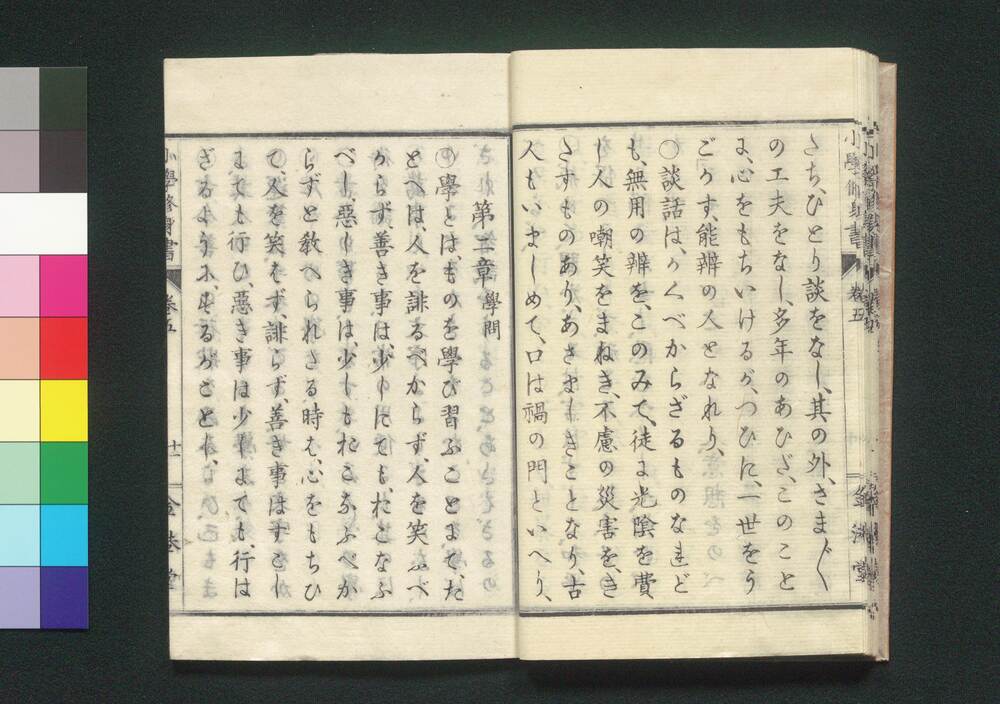 さち、ひとり談をなし、其の外、さま〴〵
の工夫をなし、多年のあひだ、このこと
に、心をもちいけるが、つひに、一世をう
ごかす、能辨の人となれり、
〇談話は、かくべからざるものなれど
も、無用の辨を、このみて、徒に光陰を費
し人の嘲笑をまねき、不慮の災害を、き
さすものあり、あさましきことなり、古
人もいましめて、口は禍の門といへり、
第二章 學問
學とは、ものを學び習ふことにて、た
とへは人を誹るべからず、人を笑ふべ
からず、善き事は、少しにても、おこなふ
べし、惡しき事は、少しもおこなふべか
らずと教へられさる時は、心をもちひ
て、人を笑はず、誹らず、善き事はすこし
にても行ひ、惡き事は少しにても、行は
ざるように、するかごとし、
小學修身書 卷五
小學修身書 卷五 十一 金港堂